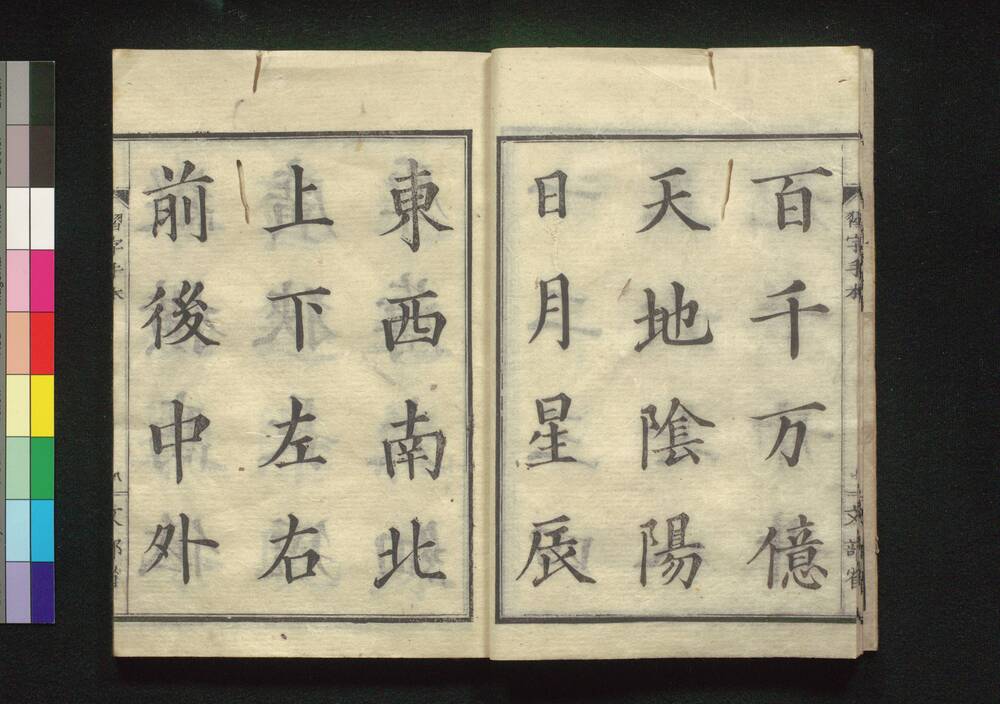 習字手本
文部省
百千万億
天地陰陽
日月星辰
東西南北
上下左右
前後中外
習字手本
文部省